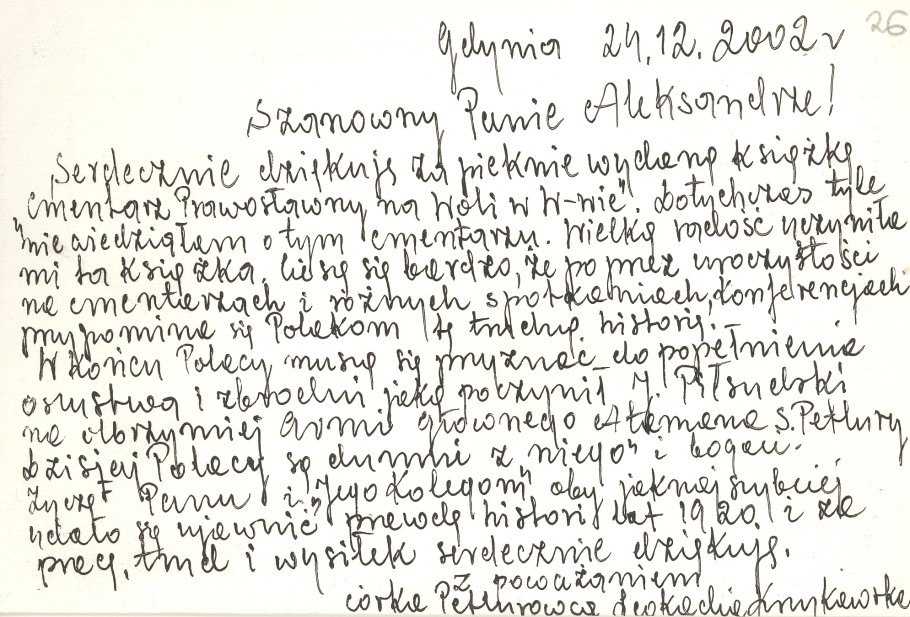 26
Gdynia 24.12.2002 r
Szanowny Panie Aleksandrze!
Serdecznie dziękuję za pięknie wydaną książkę
"Cmentarz Prawosławny na Woli w W-wie". Dotychczas tyle
nie wiedziałam o tym cmentarzu. Wielką radość uczyniła
mi ta książka, cieszę się bardzo, że poprzez uroczystości
na cmentarzach i różnych spotkaniach, konferencjach
przypomina się Polakom tę trudną historię.
W końcu Polacy muszą się przyznać do popełnienia
oszustwa i zbrodni jaką poczynił J. Piłsudski
na olbrzymiej Armi Głównego Atamana S. Petlury
dzisiaj Polacy są dumni z niego" i
Życzę Panu i "Jego Kolegom" aby jaknajszybciej
udało się ujawnić prawdę histori lat 1920 i za
pracę, trud i wysiłek serdecznie dziękuję.
Z poważaniem
córka Petlurowca Leokadia